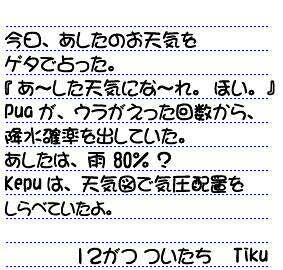 今日、あしたのお天気を
ゲタで占った。
『 あ～した天気にな～れ。 ほい。 』
Puaが、ウラがえった回数から、
降水確率を出していた。
あしたは、雨 80% ?
Kepuは、天気図で気圧配置を
しらべていたよ。
12がつ ついたち Tiku